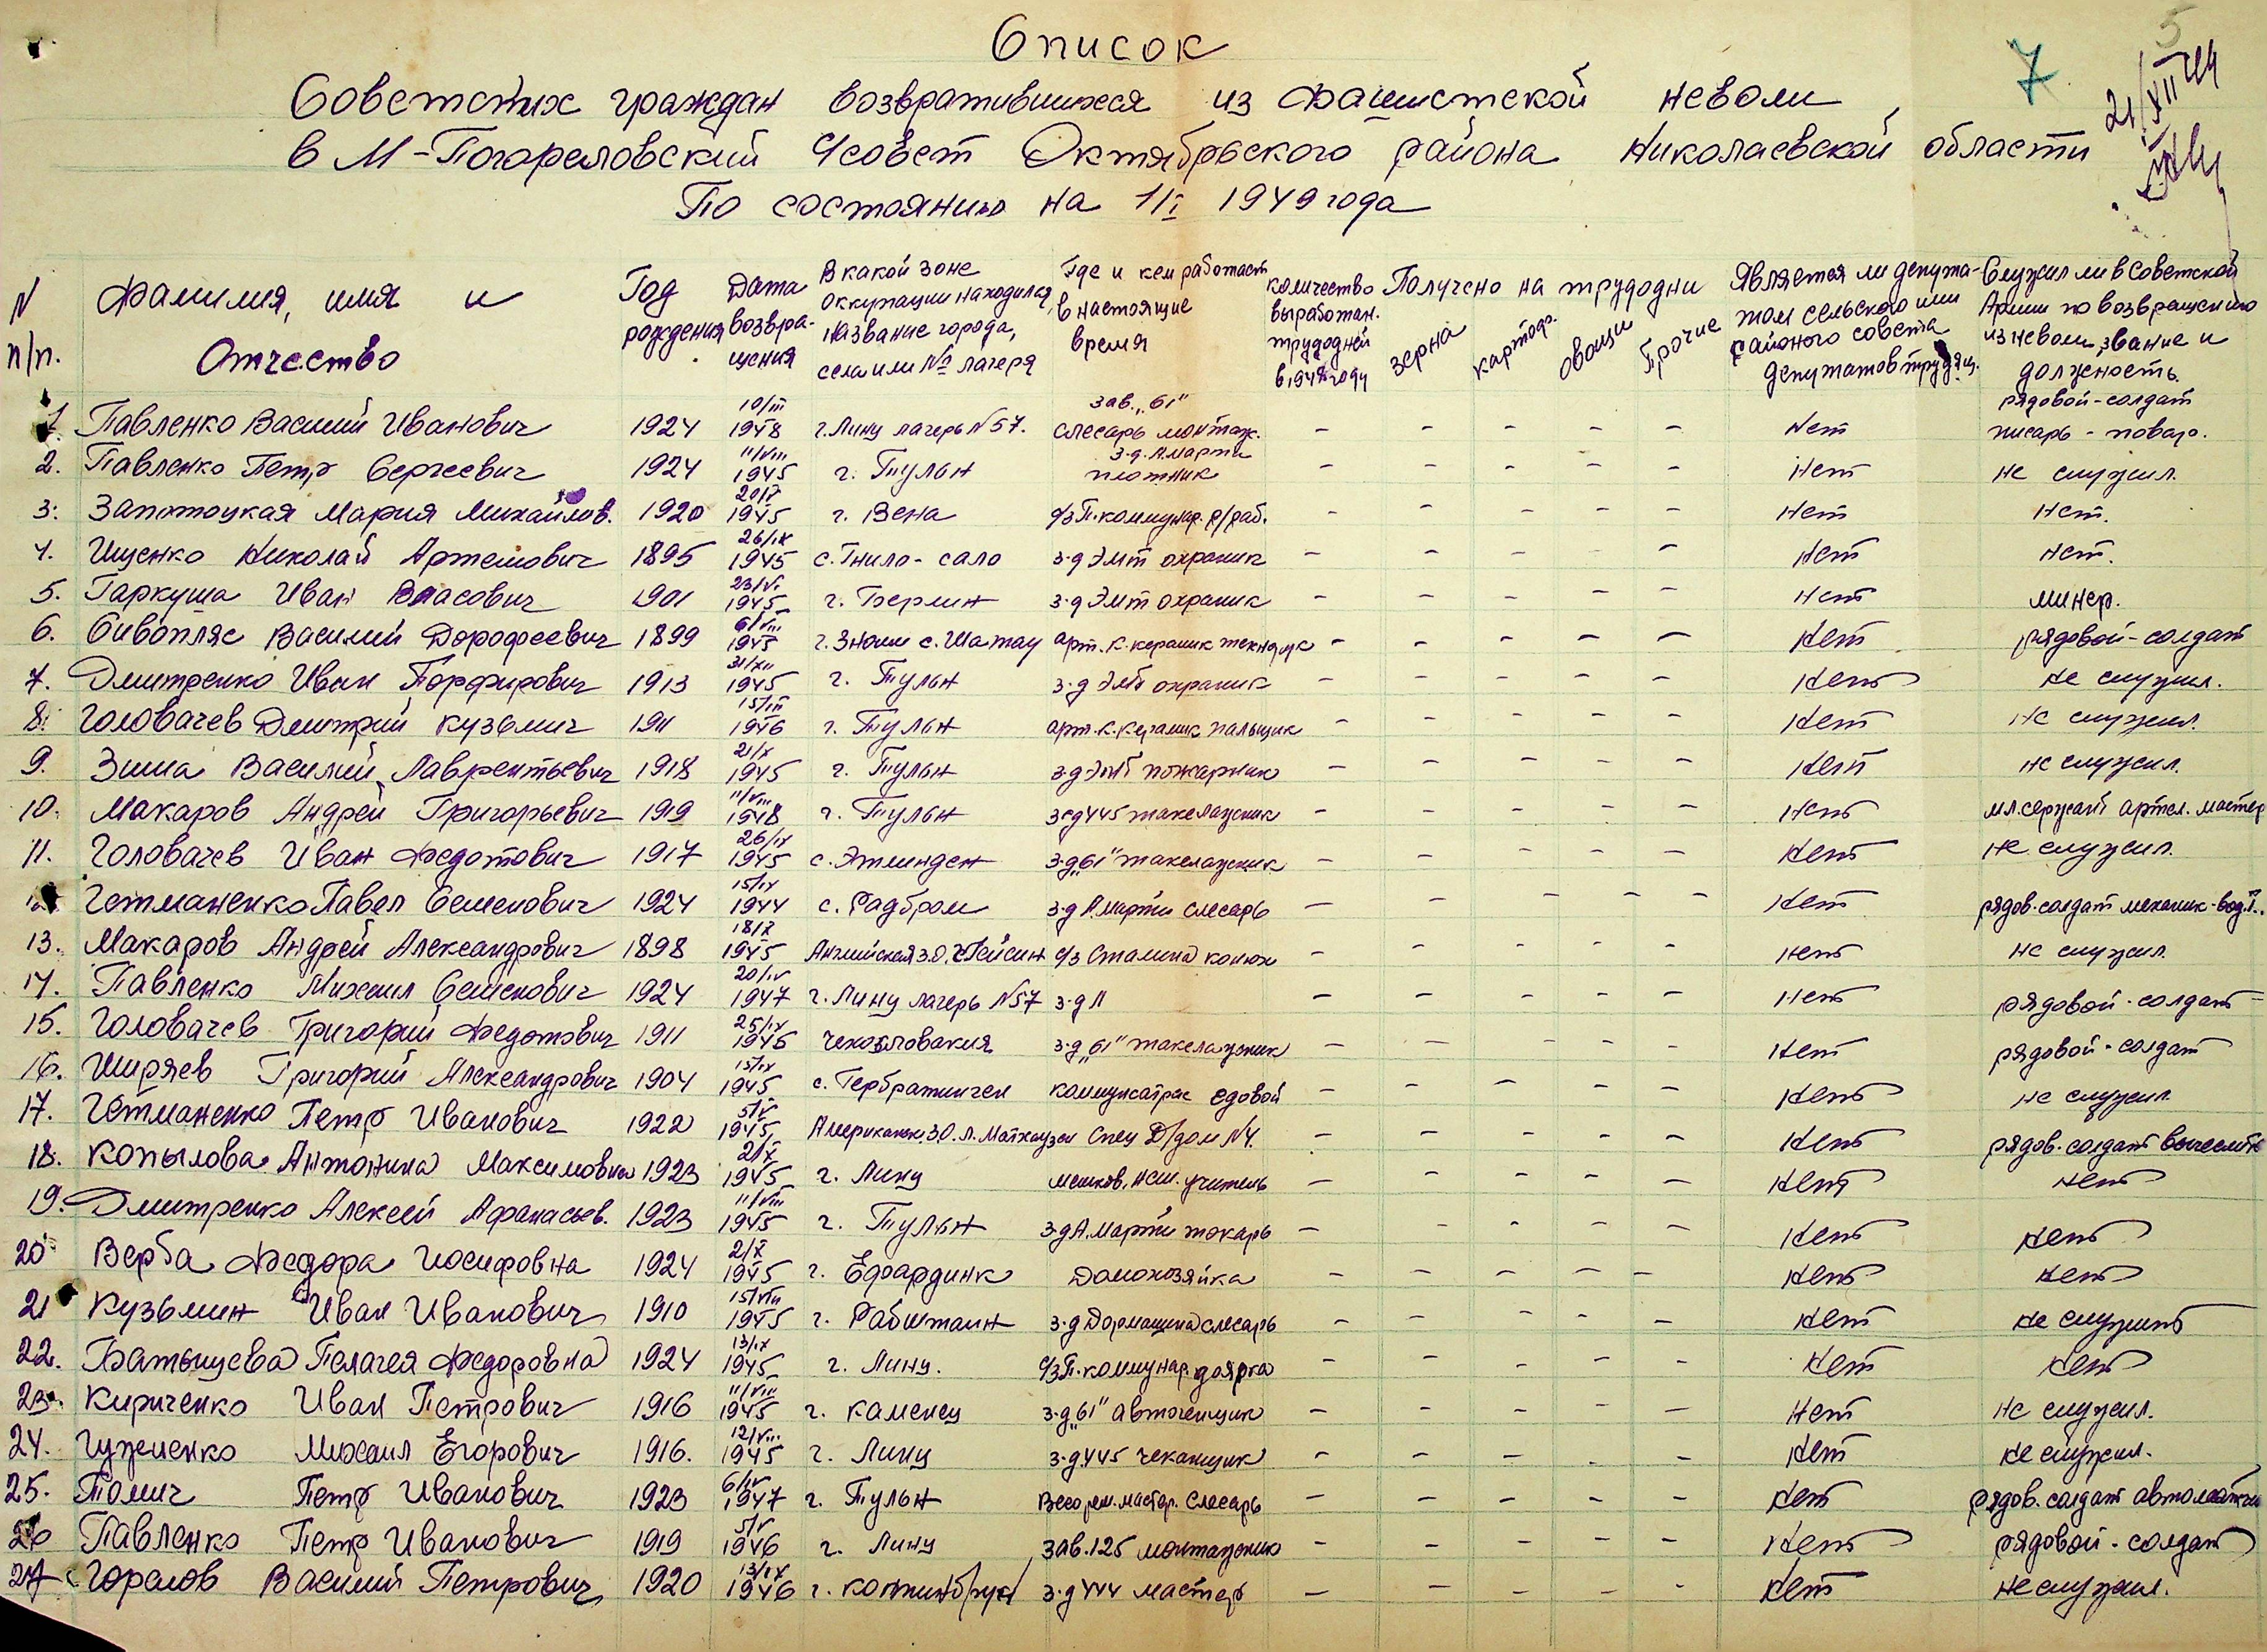 Список
7
5
21/XII 44
Советских граждан возвратившихся из фашистской неволи
в М-Погореловский с/совет Октябрьского района Николаевской области
По состоянию на 1/I 1949 года
N п/п. Фамилия, имя и Отчество Год рождения Дата возвращения В какой зоне оккупации находился, название города, села или № лагеря Где и кем работает в настоящие время количество выработан. трудодней в 1948 году Получено на трудодни зерна картоф. овощи Прочие Является ли депутатом сельского или районого совета депутатов трудящ. Служил ли в Советской Армии по возвращению из неволи, звание и должность.
1. Павленко Василий Иванович 1924 10/III 1948 г. Линц лагерь N 57. зав. „61" слесарь монтаж. - - - - - Нет рядовой-солдат писарь - повар.
2. Павленко Петр Сергеевич 1924 11/VIII 1945 г. Тульн з-д. А.Марти плотник - - - - - Нет не служил.
3. Запотоцкая Мария Михайлов. 1920 20/X 1945 г. Вена с/з П.коммунар. р/раб. - - - - - Нет Нет.
4. Ищенко Николай Артемович 1895 26/IX 1945 с. Гнило-сало з-д Эмт охраник - - - - - Нет Нет.
5. Гаркуша Иван Власович 1901 23/VI 1945 г. Берлин з-д Эмт охраник - - - - - Нет минер.
6. Сивопляс Василий Дорофеевич 1899 6/VIII 1945 г. Зноим с. Шатау арт. к. керамик - - - - - Нет рядовой-солдат
7. Дмитренко Иван Порфирович 1913 31/XII 1945 г. Тульн з-д Эмт охраник - - - - - Нет не служил.
8. Головачев Дмитрий Кузьмич 1911 15/III 1946 г. Тульн арт. к. керамик пальщик - - - - - Нет Не служил.
9. Зима Василий Лаврентьевич 1918 21/X 1945 г. Тульн з-д Эмт пожарник - - - - - Нет не служил.
10. Макаров Андрей Григорьевич 1919 11/VIII 1948 г. Тульн з-д 445 такелажник - - - - - Нет мл. сержант артел. мастер
11. Головачев Иван Федотович 1917 26/IX 1945 с. Этлинден з-д „61" такелажник - - - - - Нет Не служил.
12. Гетманенко Павел Семенович 1924 15/IX 1944 с. Радбром з-д А.Марти слесарь - - - - - Нет рядов. солдат механик-вод.
13. Макаров Андрей Александрович 1898 18/X 1945 Английская з.о. с/з Сталина конюх - - - - - Нет не служил.
14. Павленко Михаил Семенович 1924 20/IV 1947 г. Линц лагерь N 57 з-д А - - - - - Нет рядовой-солдат
15. Головачев Григорий Федотович 1911 25/IX 1946 Чехословакия з-д „61" такелажник - - - - - Нет рядовой-солдат
16. Ширяев Григорий Александрович 1904 15/IX 1945 с. Гербратинген ездовой - - - - - Нет не служил.
17. Гетманенко Петр Иванович 1922 5/V 1945 Американск. З.О. л. Матхаузен Спец Д/дом N 4. - - - - - Нет рядов. солдат
18. Копылова Антонина Максимовна 1923 2/X 1945 г. Линц мешков. нсш. учитель - - - - - Нет Нет
19. Дмитренко Алексей Афанасьев. 1923 11/VIII 1945 г. Тульн з-д А.Марти токарь - - - - - Нет Нет
20 Верба Федора Иосифовна 1924 2/X 1945 г. Едоардинк Домохозяйка - - - - - Нет Нет
21 Кузьмин Иван Иванович 1910 15/VIII 1945 г. Рабштаин з-д Дормашина слесарь - - - - - Нет Не служит
22. Батыщева Пелагея Федоровна 1924 13/IX 1945 г. Линц. с/з П.коммунар. доярка - - - - - Нет Нет
23. Кириченко Иван Петрович 1916 11/VIII 1945 г. Каменец з-д „61" автогенщик - - - - - Нет Не служил.
24. Гуженко Михаил Егорович 1916. 12/VIII 1945 г. Линц з-д 445 чеканщик - - - - - Нет Не служил.
25. Томич Петр Иванович 1923 6/IV 1947 г. Тульн Весо рем. мастер. Слесарь - - - - - Нет рядов. солдат автоматчик
26 Павленко Петр Иванович 1919 5/V 1946 г. Линц Зав. 125 монтажник - - - - - Нет рядовой-солдат
27 Горелов Василий Петрович 1920 13/IX 1946 г. з-д 444 мастер - - - - - Нет не служил.